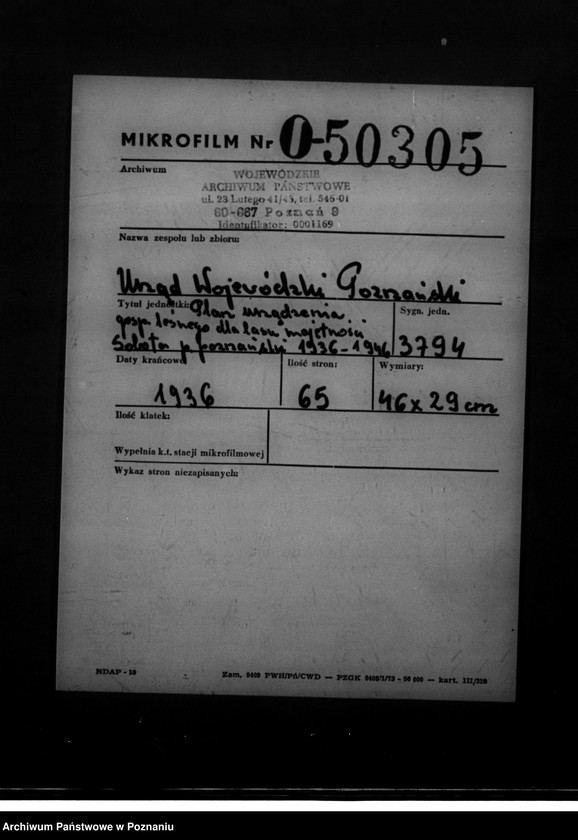 MIKROFILM Nr O-50305
Archiwum
WOJEWÓDZKIE
ARCHIWUM PAŃSTWOWE
ul. 23 Lutego 41/43, tel. 546-01
60-967 Poznań 9
Identyfikator: 0001169
Nazwa zespołu lub zbioru:
Urząd Wojewódzki Poznański
Tytuł jednostki: Plan urządzenia
gosp. leśnego dla lasu majętności
Sobota p. poznański 1936-1946
Sygn. jedn.
3794
Daty krańcowe
1936
Ilość stron:
65
Wymiary:
46 x 29 cm
Ilość klatek:
Wypełnia k.t. stacji mikrofilmowej
Wykaz stron niezapisanych:
NDAP - 10
Zam. 9409 PWH/Pń/CWD — PZGK 9409/I/73 - 50 000 — kart. III/320
Archiwum Państwowe w Poznaniu